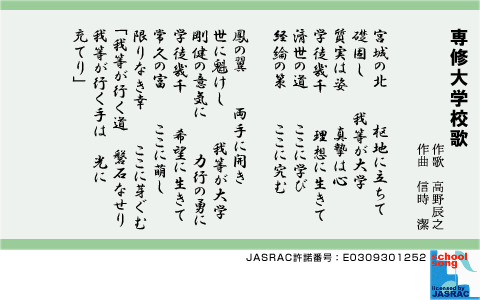 専修大学校歌
作歌　高野辰之
作曲　信時　潔
宮城の北　　枢地に立ちて
礎固し　　我等が大学
質実は姿　　真摯は心
学徒幾千　　理想に生きて
済世の道　　ここに学び
経綸の策　　ここに究む
鳳の翼　　両手に開き
世に魁けし　　我等が大学
剛健の意気に　　力行の勇に
学徒幾千　　希望に生きて
常久の富　　ここに萌し
限りなき幸　　ここに芽ぐむ
「我等が行く道　　磐石なせり
我等が行く手は　　光に
充てり」
JASRAC許諾番号：E0309301252
school
song
licensed by
JASRAC